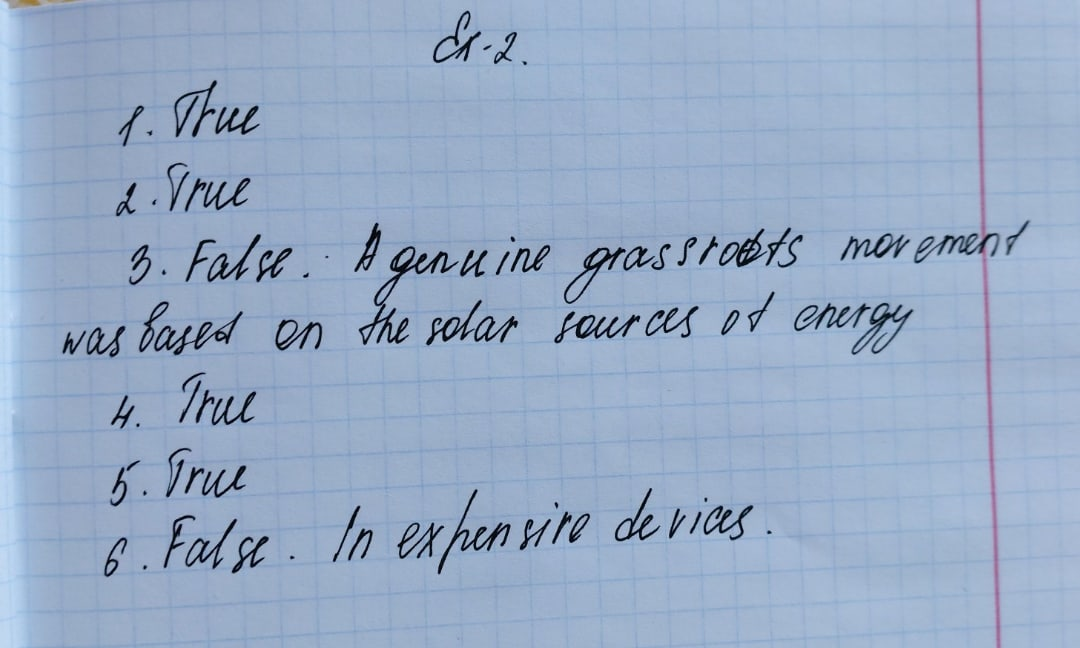 Ex-2.
1. True
2. True
3. False. A genuine grassroots movement
was based on the solar sources of energy
4. True
5. True
6. False. In expensive devices.